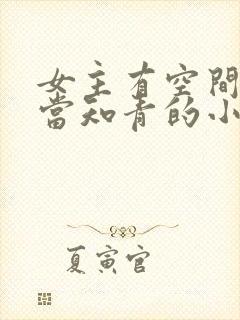 女主有空間
當知青的小
夏寅官